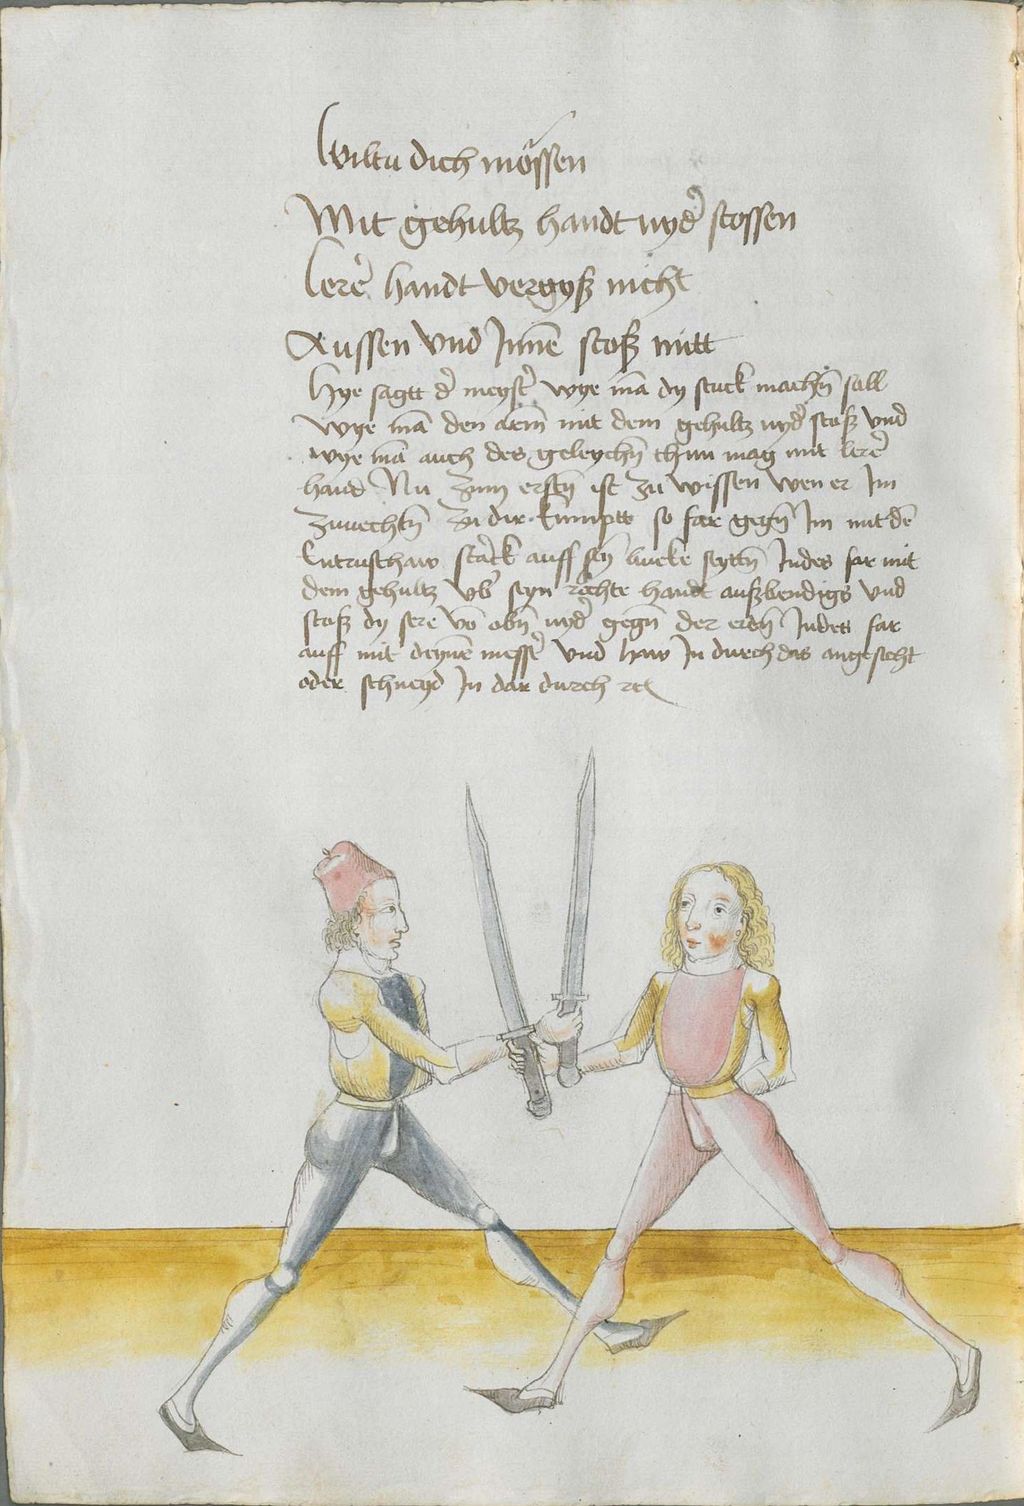 Wiltu dich mössen
Mit gehultz handt nyd' stossen
lere' handt vergyß nicht
Aussen vnd Jnne͂ stoß mitt
Hye sagtt d' meyst' wye ma͂ dy stuck mach͂n sall
wye ma͂ den arm mit dem gehultz nyd' stoß vnd
wye ma͂ auch des geleych͂n thun mag mit lere'
hand Nu zum erst͂n ist zu wissen wen er Jm
zuuecht͂n zu dir kumptt so far geg͂n Jm mit de͂
Entrusthaw starck auff sey͂ lincke seytt͂n Jndes far mit
dem gehultz vb' seyn rechte handt außbendigs vnd
stoß dy sere vo͂ ob͂n nyd' geg͂n der erd͂n Jndes far
auff mit deyne͂ messe' vnd haw Jn durch das angesicht
oder schneyd Jn dar durch etc